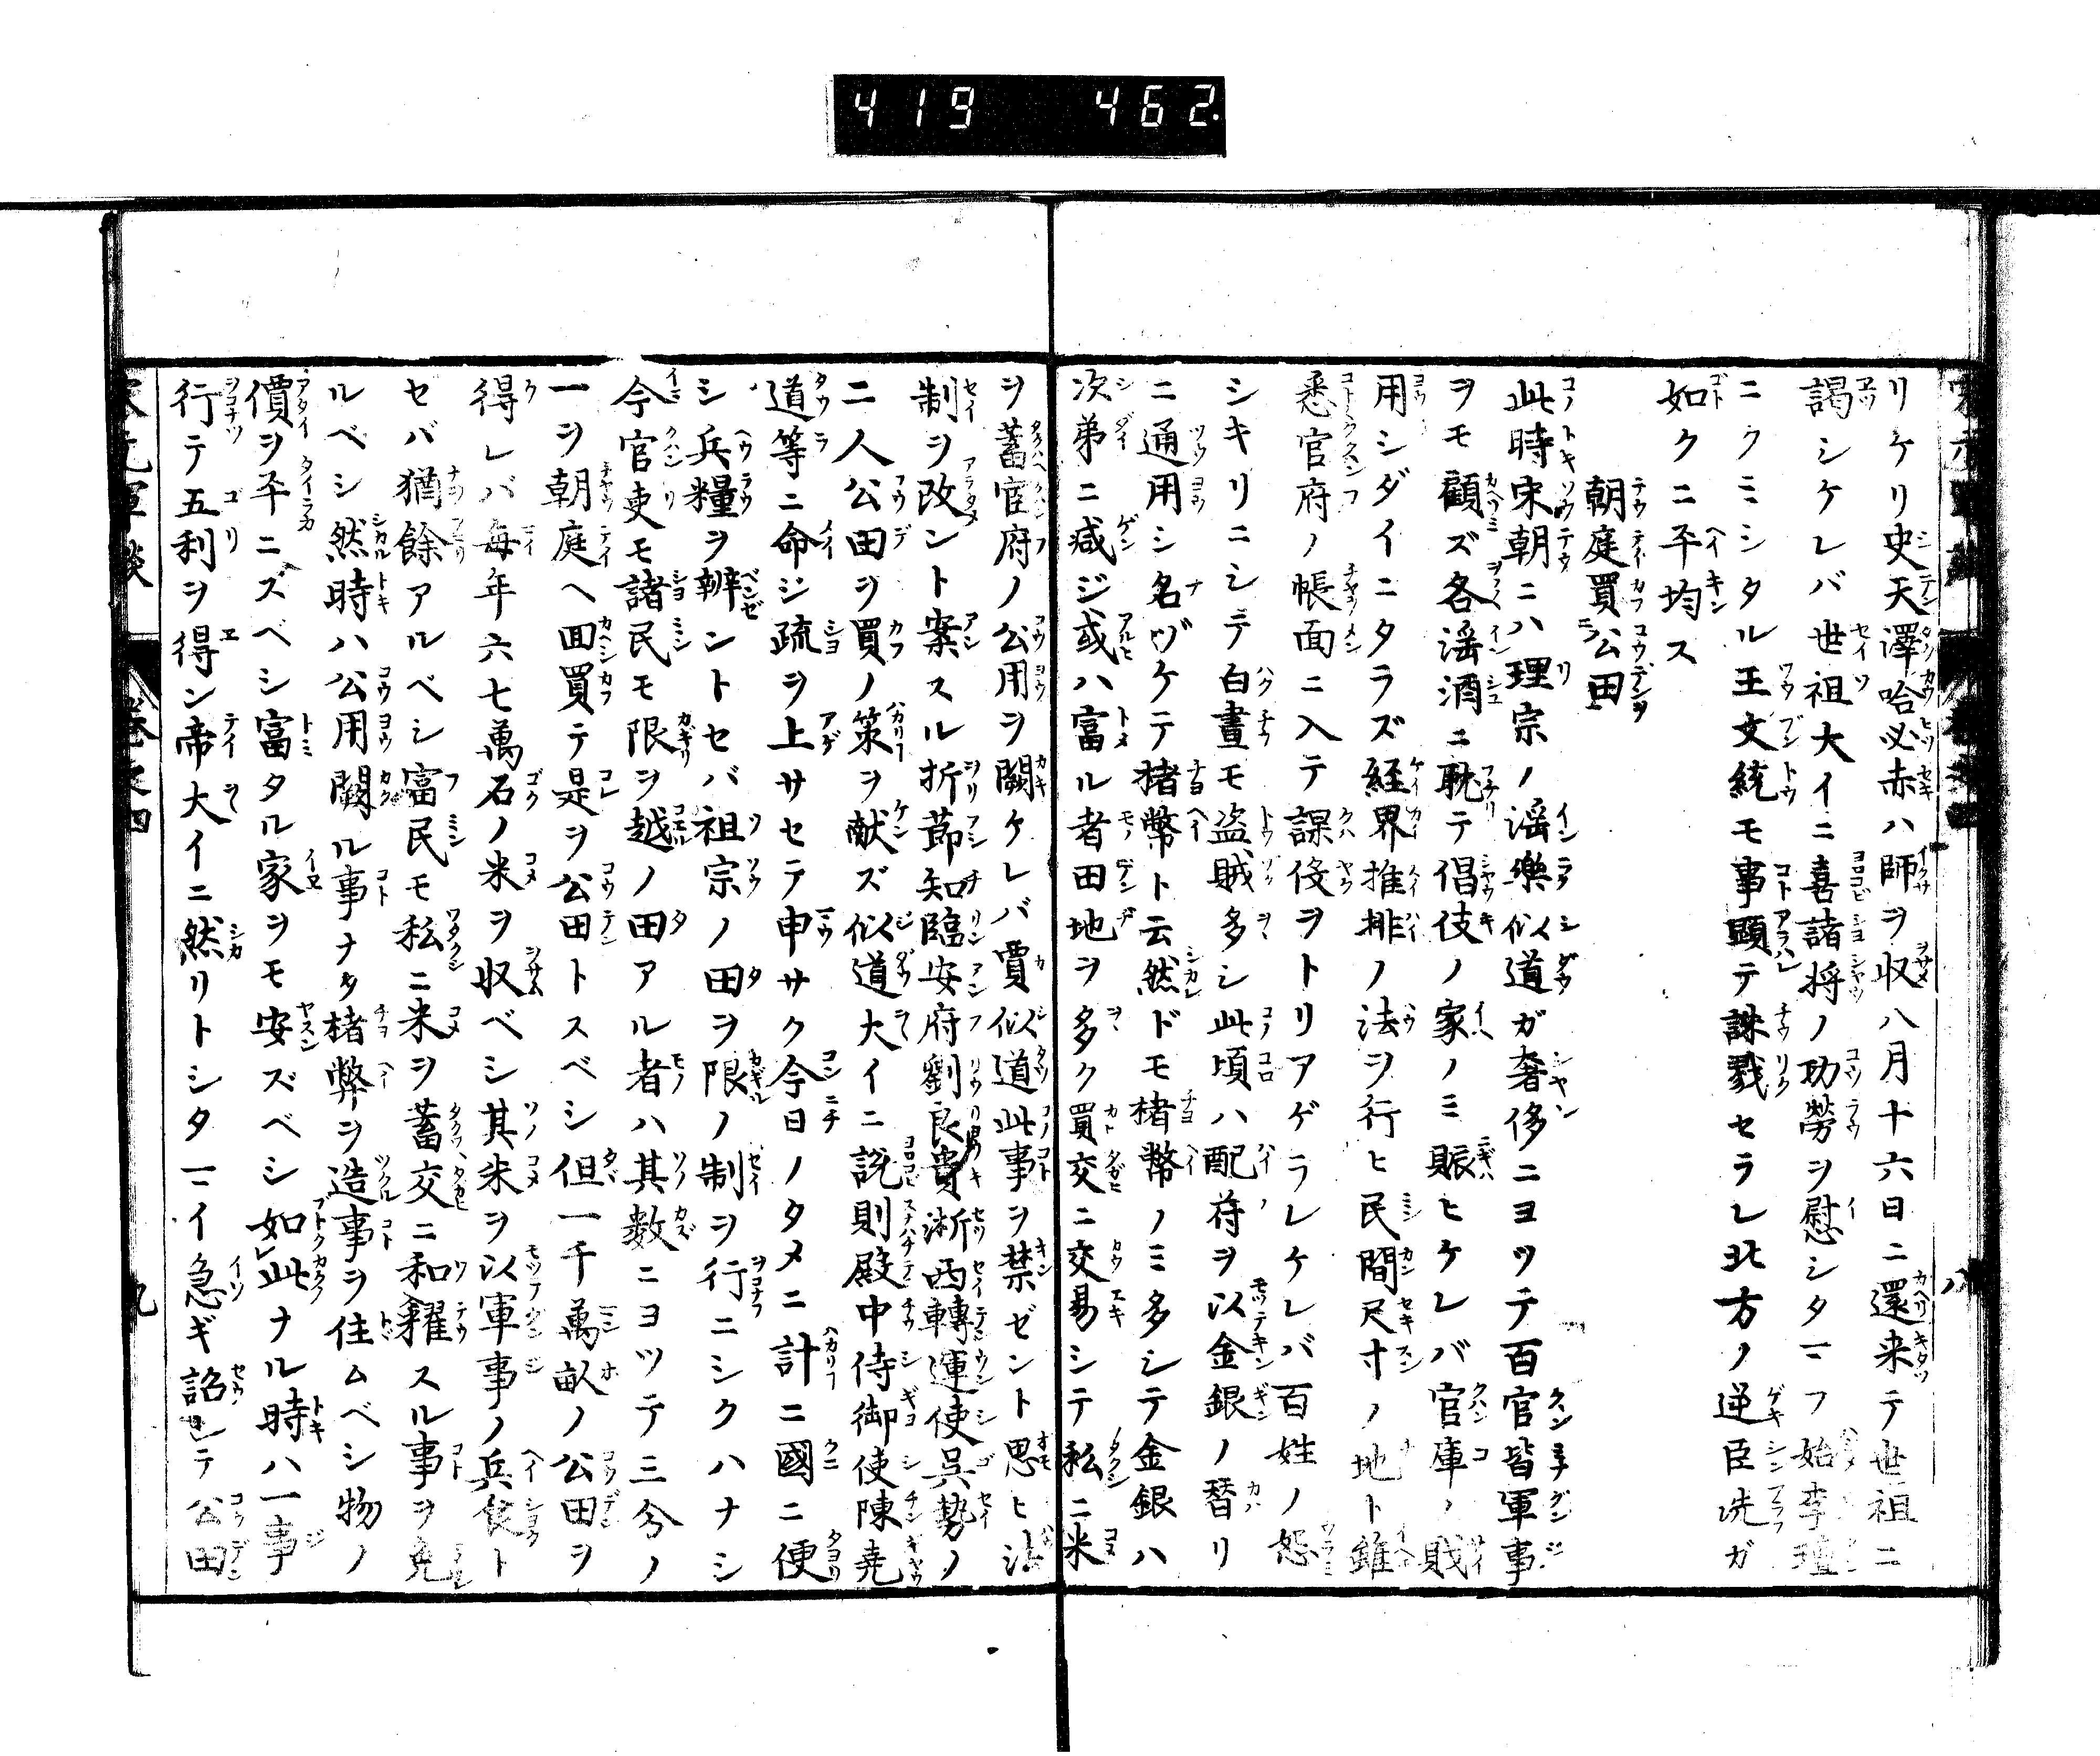 419 462.
リケリ史天澤哈必赤ハ師ヲ収八月十六日ニ還来テ世祖ニ
謁シケレバ世祖大イニ喜諸将ノ功勞ヲ慰シタマフ始李璮
ニクミシタル王文統モ事顕テ誅戮セラレ北方ノ逆臣洗ガ
如クニ平均ス
朝庭買公田
此時宋朝ニハ理宗ノ滛樂似道ガ奢侈ニヨツテ百官皆軍事
ヲモ顧ズ各滛酒ニ耽テ倡伎ノ家ノミ賑ヒケレバ官庫ノ賎
用シダイニタラズ経界推排ノ法ヲ行ヒ民間尺寸ノ地ト雖
悉官府ノ帳面ニ入テ課役ヲトリアゲラレケレバ百姓ノ怨
シキリニシテ白晝モ盗賊多シ此頃ハ配符ヲ以金銀ノ替リ
ニ通用シ名ヅケテ楮幣ト云然ドモ楮幣ノミ多シテ金銀ハ
次第ニ减ジ或ハ富ル者田地ヲ多ク買交ニ交易シテ私ニ米
ヲ蓄官府ノ公用ヲ闕ケレバ賈似道此事ヲ禁ゼント思ヒ法
制ヲ改ント案スル折節知臨安府劉良貴浙西轉運使呉勢ノ
二人公田ヲ買ノ策ヲ献ズ似道大イニ説則殿中侍御使陳堯
道等ニ命ジ疏ヲ上サセテ申サク今日ノタメニ計ニ國ニ便
シ兵糧ヲ辨ントセバ祖宗ノ田ヲ限ノ制ヲ行ニシクハナシ
今官吏モ諸民モ限ヲ越ノ田アル者ハ其数ニヨツテ三分ノ
一ヲ朝庭ヘ囬買テ是ヲ公田トスベシ但一千萬畝ノ公田ヲ
得レバ毎年六七萬石ノ米ヲ収ベシ其米ヲ以軍事ノ兵食ト
セバ猶餘アルベシ富民モ私ニ米ヲ蓄交ニ和糴スル事ヲ免
ルベシ然時ハ公用闕ル事ナク楮弊ヲ造事ヲ住ムベシ物ノ
價ヲ平ニスベシ富タル家ヲモ安ズベシ如此ナル時ハ一事
行テ五利ヲ得ン帝大イニ然リトシタマイ急ギ詔シテ公田
宋元軍談 卷之四 九